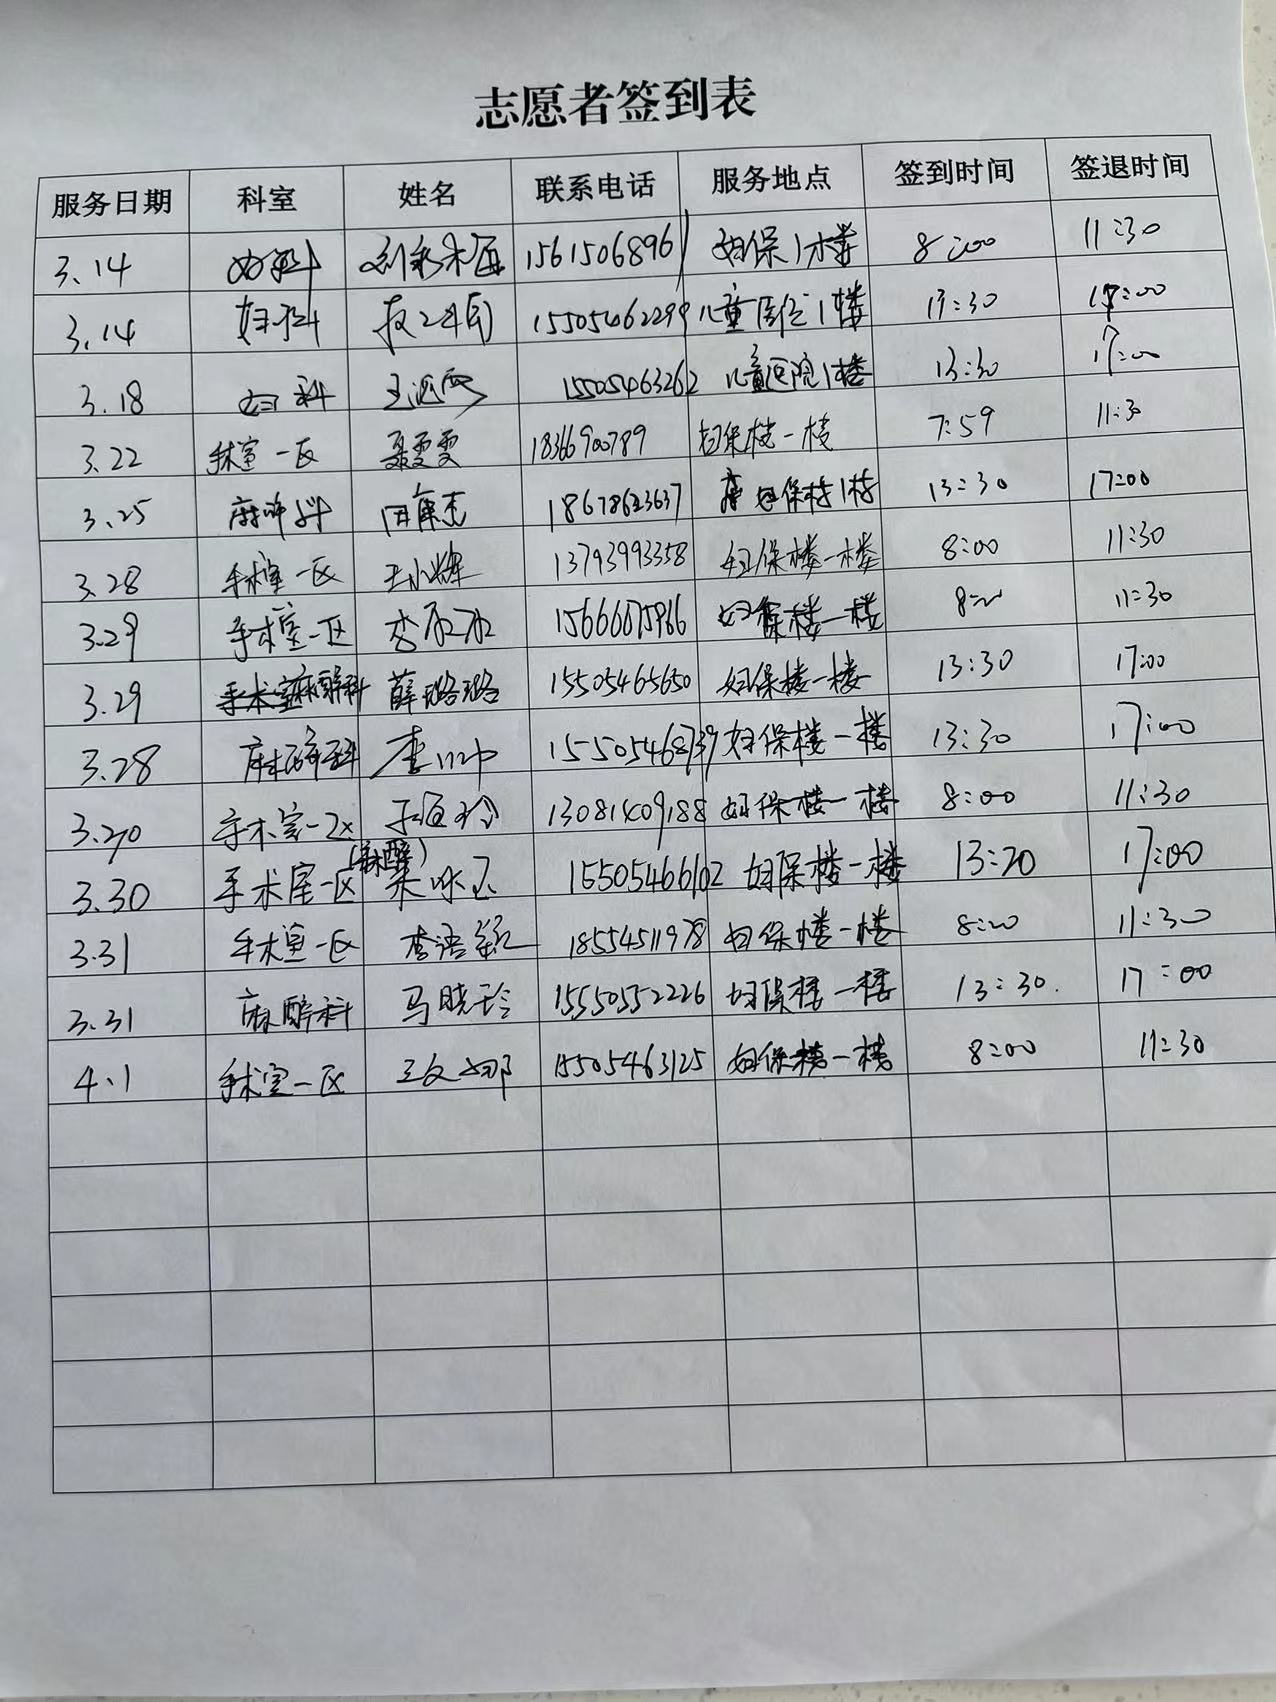 志愿者签到表
服务日期 科室 姓名 联系电话 服务地点 签到时间 签退时间
3.14 妇科 15615068961 妇保1楼 8:00 11:30
3.14 妇科 15505462299 儿童医院1楼 13:30 17:00
3.18 妇科 15505463262 儿童医院1楼 13:30 17:00
3.22 手术室一区 聂雯雯 18366900789 妇保楼一楼 7:59 11:30
3.25 麻醉科 田康杰 18678623637 妇保楼1楼 13:30 17:00
3.28 手术室一区 王小辉 13793993358 妇保楼一楼 8:00 11:30
3.29 手术室一区 妇保楼一楼 8:00 11:30
3.29 麻醉科 薛璐璐 15505465650 妇保楼一楼 13:30 17:00
3.28 麻醉科 李川中 妇保楼一楼 13:30 17:00
手术室一区 13081409188 妇保楼一楼 8:00 11:30
3.30 手术室一区 (麻醉) 15505466102 妇保楼一楼 13:30 17:00
3.31 手术室一区 18554511978 妇保楼一楼 8:00 11:30
3.31 麻醉科 马晓玲 15550552226 妇保楼一楼 13:30. 17:00
4.1 手术室一区 15505463125 妇保楼一楼 8:00 11:30